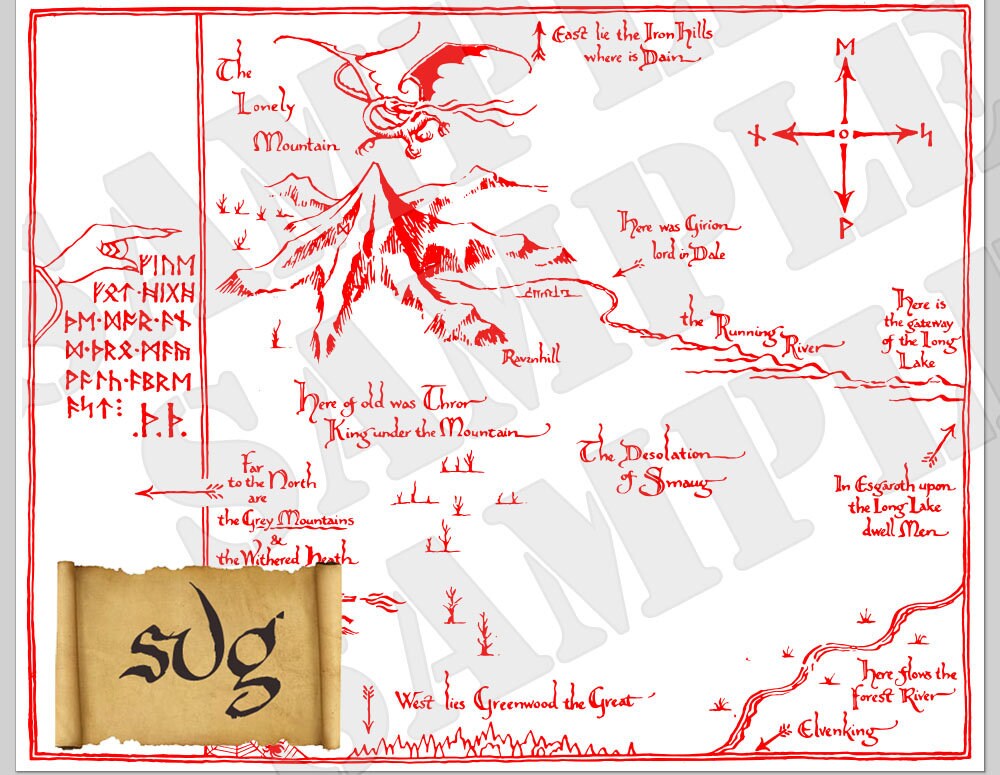 East lie the Iron Hills
where is Dain
The
Lonely
Mountain
ᛖ
ᚾ
ᛋ
ᚹ
Here was Girion
lord in Dale
ᚠᛁᚢᛖ
ᚠᛟᛏ·ᚻᛁᚷᚻ
ᚦᛖ·ᛞᚩᚱ·ᚪᚾ
ᛞ·ᚦᚱᛟ·ᛗᚪᚣ
ᚹᚪᛚᚳ·ᚪᛒᚱᛖ
ᚪᛋᛏ⁝
.ᚦ.ᚦ.
the Running
River
Here is
the gateway
of the Long
Lake
Ravenhill
Here of old was Thror
King under the Mountain
The Desolation
of Smaug
Far
to the North
are
the Grey Mountains
&
the Withered Heath
In Esgaroth upon
the Long Lake
dwell Men
svg
Here flows the
Forest River
West lies Greenwood the Great
Elvenking
SAMPLE
SAMPLE
SAMPLE
SAMPLE